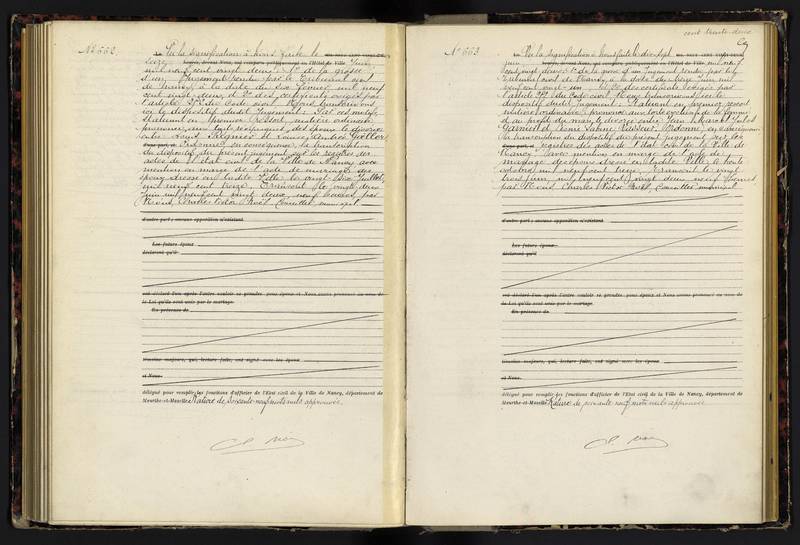 cent trente deux
No 662
Vu la signification à nous faite le
seize juin
mil neuf cent vingt deux : 1° de la grosse
d'un jugement rendu par le Tribunal civil
de Nancy, à la date du six février mil neuf
cent vingt deux, 2° des certificats exigés par
l'article 252 du Code civil. Nous transcrivons
ici le dispositif dudit jugement : Par ces motifs
statuant en premier ressort, matière ordinaire,
prononce aux torts réciproques des époux le divorce
entre
ordonne en conséquence la transcription
du dispositif du présent jugement sur les registres des
actes de l'état civil de la Ville de Nancy avec
mention en marge de l'acte de mariage des
époux dressé en ladite Ville le vingt six juillet
mil neuf cent treize. Transcrit le vingt deux
juin mil neuf cent vingt deux, neuf heures, par
Nous, Charles Victor Conseiller municipal
d'autre part ; aucune opposition n'existant
Les futurs époux
déclarent qu'il
ont déclaré l'un après l'autre vouloir se prendre pour époux et Nous avons prononcé au nom de
la Loi qu'ils sont unis par le mariage.
En présence de
témoins majeurs, qui, lecture faite, ont signé avec les époux
et Nous
délégué pour remplir les fonctions d'officier de l'État civil de la Ville de Nancy, département de
Meurthe-et-Moselle. Rature de soixante neuf mots nuls approuvée.
No 663
Vu la signification à nous faite le dix sept
juin mil neuf
cent vingt deux : 1° de la grosse d'un jugement rendu par le
Tribunal civil de Nancy, à la date du treize juin mil
neuf cent vingt un 2° des certificats exigés par
l'article 252 du Code civil. Nous transcrivons ici le
dispositif dudit jugement : Statuant en premier ressort
matière ordinaire, prononce aux torts exclusifs de la femme
et au profit du mari le divorce entre : Jean Edouard Jules
Garnier et Ordonne, en conséquence
la transcription du dispositif du présent jugement sur les
registres des actes de l'état civil de la Ville de
Nancy avec mention en marge de l'acte de
mariage des époux dressé en ladite Ville le trente
octobre mil neuf cent treize. Transcrit le vingt
trois juin mil neuf cent vingt deux neuf heures
par Nous, Charles Victor Conseiller municipal
d'autre part ; aucune opposition n'existant
Les futurs époux
déclarent qu'il
ont déclaré l'un après l'autre vouloir se prendre pour époux et Nous avons prononcé au nom de
la Loi qu'ils sont unis par le mariage.
En présence de
témoins majeurs, qui, lecture faite, ont signé avec les époux
et Nous
délégué pour remplir les fonctions d'officier de l'État civil de la Ville de Nancy, département de
Meurthe-et-Moselle. Rature de soixante neuf mots nuls approuvée.